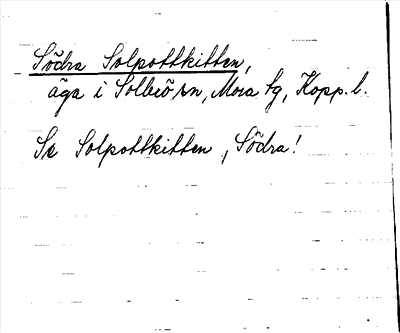 Södra Solpottkitten,
äga i Sollerö sn, Mora tg, Kopp. l.
Se Solpottkitten, Södra!